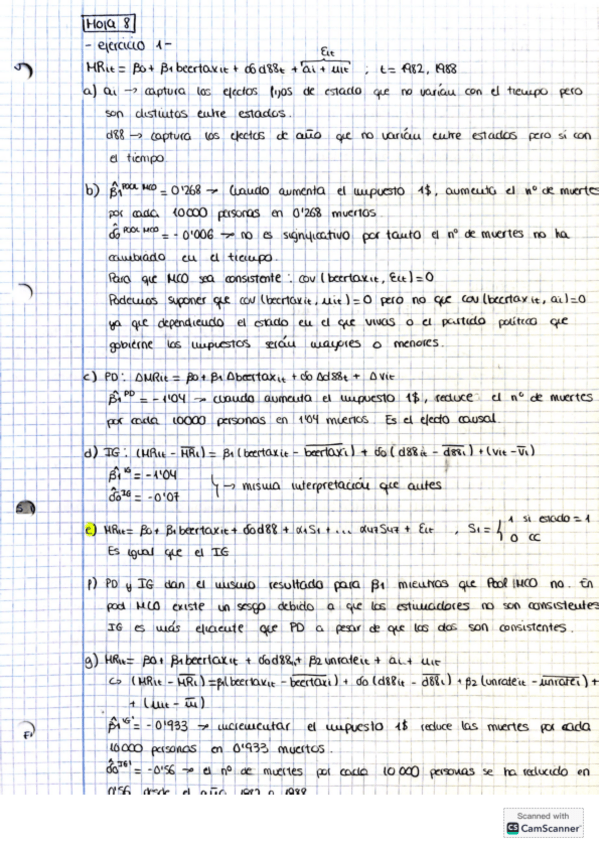 Hoja 8
- ejercicio 1 -
εit
MRit = β0 + β1 beertaxit + δ0 d88t + ai + uit ; t = 1982, 1988
a) ai → captura los efectos fijos de estado que no varían con el tiempo pero
son distintos entre estados.
d88 → captura los efectos de año que no varían entre estados pero si con
el tiempo.
b) β̂1 POOL MCO = 0'268 → Cuando aumenta el impuesto 1$, aumenta el nº de muertes
por cada 10000 personas en 0'268 muertos.
δ̂0 POOL MCO = - 0'006 → no es significativo por tanto el nº de muertes no ha
cambiado en el tiempo.
Para que MCO sea consistente : cov (beertaxit, εit) = 0
Podemos suponer que cov (beertaxit, uit) = 0 pero no que cov (beertaxit, ai) = 0
ya que dependiendo el estado en el que vivas o el partido político que
gobierne los impuestos serán mayores o menores.
c) PD : ΔMRit = β0 + β1 Δbeertaxit + δ0 Δd88t + Δvit
β̂1 PD = - 1'04 → cuando aumenta el impuesto 1$, reduce el nº de muertes
por cada 10000 personas en 1'04 muertos. Es el efecto causal.
d) IG : (MRit - M̅R̅i) = β1 (beertaxit - b̅e̅e̅r̅t̅a̅x̅i) + δ0 (d88it - d̅8̅8̅i) + (vit - v̅i)
β̂1 IG = - 1'04
δ̂0 IG = - 0'07
} → misma interpretación que antes
e) MRit = β0 + β1 beertaxit + δ0 d88 + α1 S1 + ... α47 S47 + εit , S1 = { 1 si estado = 1
0 cc
Es igual que el IG
f) PD y IG dan el mismo resultado para β1 mientras que Pool MCO no. En
pool MCO existe un sesgo debido a que los estimadores no son consistentes
IG es más eficiente que PD a pesar de que los dos son consistentes.
g) MRit = β0 + β1 beertaxit + δ0 d88it + β2 unrateit + ai + uit
↳ (MRit - M̅R̅i) = β1 (beertaxit - b̅e̅e̅r̅t̅a̅x̅i) + δ0 (d88it - d̅8̅8̅i) + β2 (unrateit - u̅n̅r̅a̅t̅e̅i) +
+ (uit - u̅i)
β̂1 IG = - 0'933 → incrementar el impuesto 1$ reduce las muertes por cada
10000 personas en 0'933 muertos.
δ̂0 IG = - 0'56 → el nº de muertes por cada 10 000 personas se ha reducido en
0'56 desde el año 1982 a 1988
Scanned with
CS CamScanner